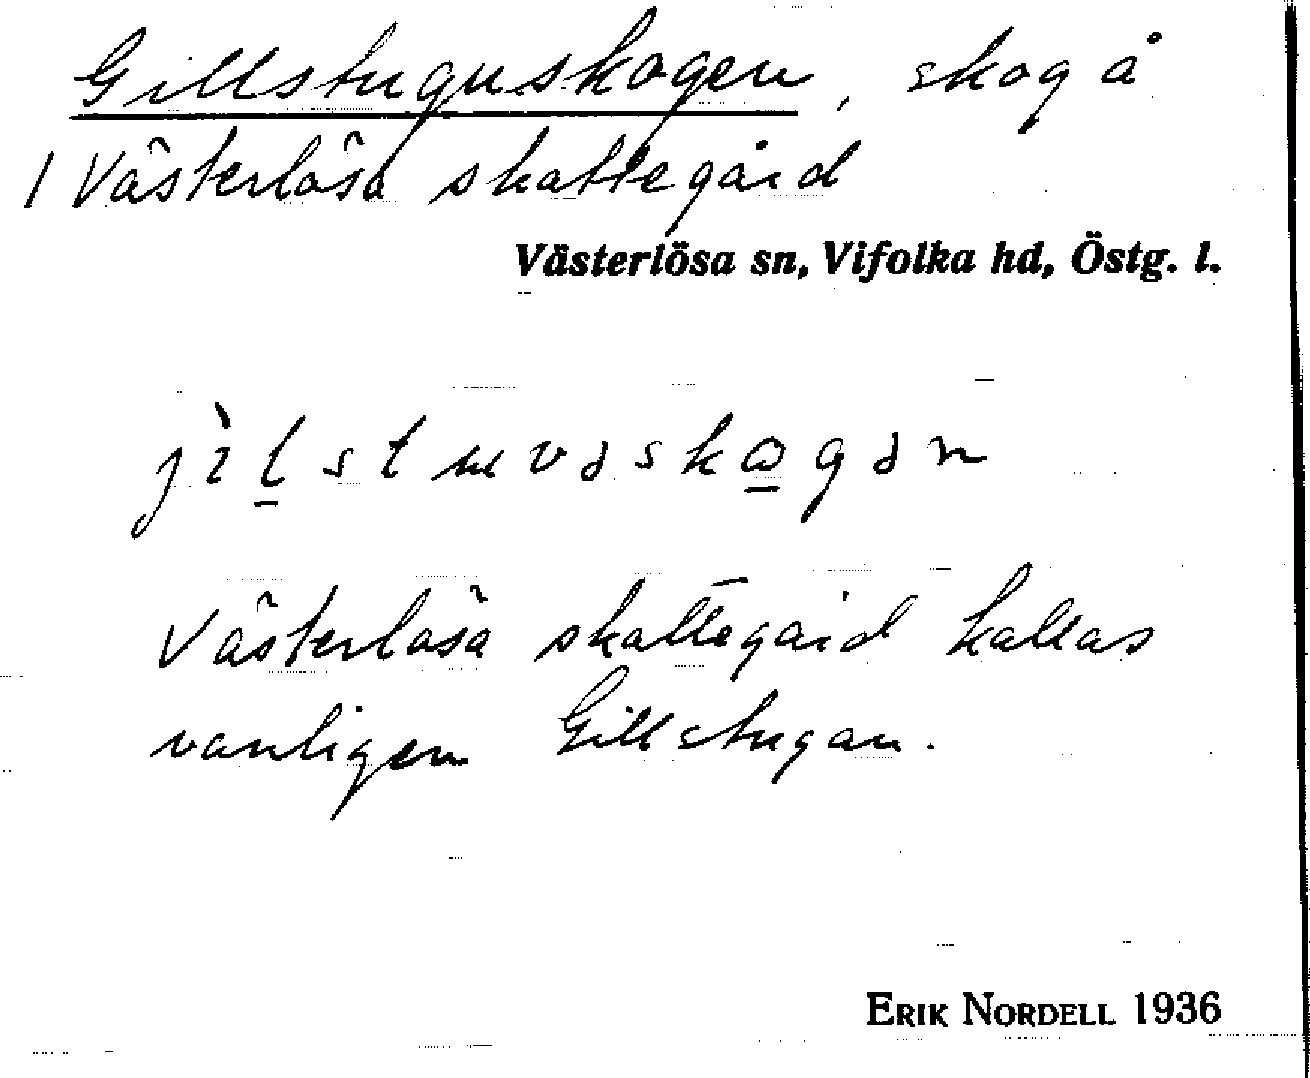 Gillstuguskogen, skog å
1 Västerlösa skattegård
Västerlösa sn, Vifolka hd, Östg. l.
jìl̲stuvəskɷ̲gən
Västerlösa skattegård kallas
vanligen Gillstugan.
ERIK NORDELL 1936